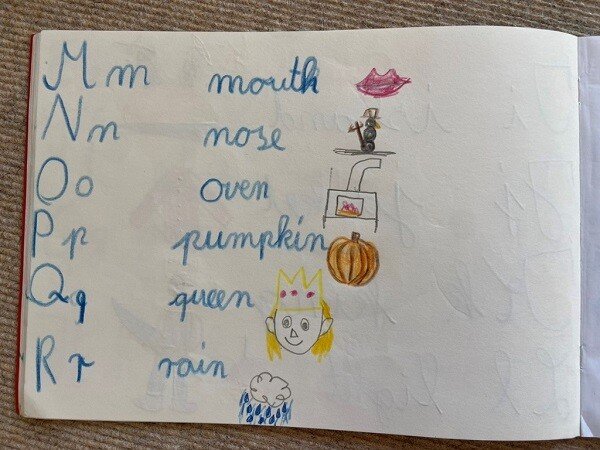 M m mouth
N n nose
O o oven
P p pumpkin
Q q queen
R r rain